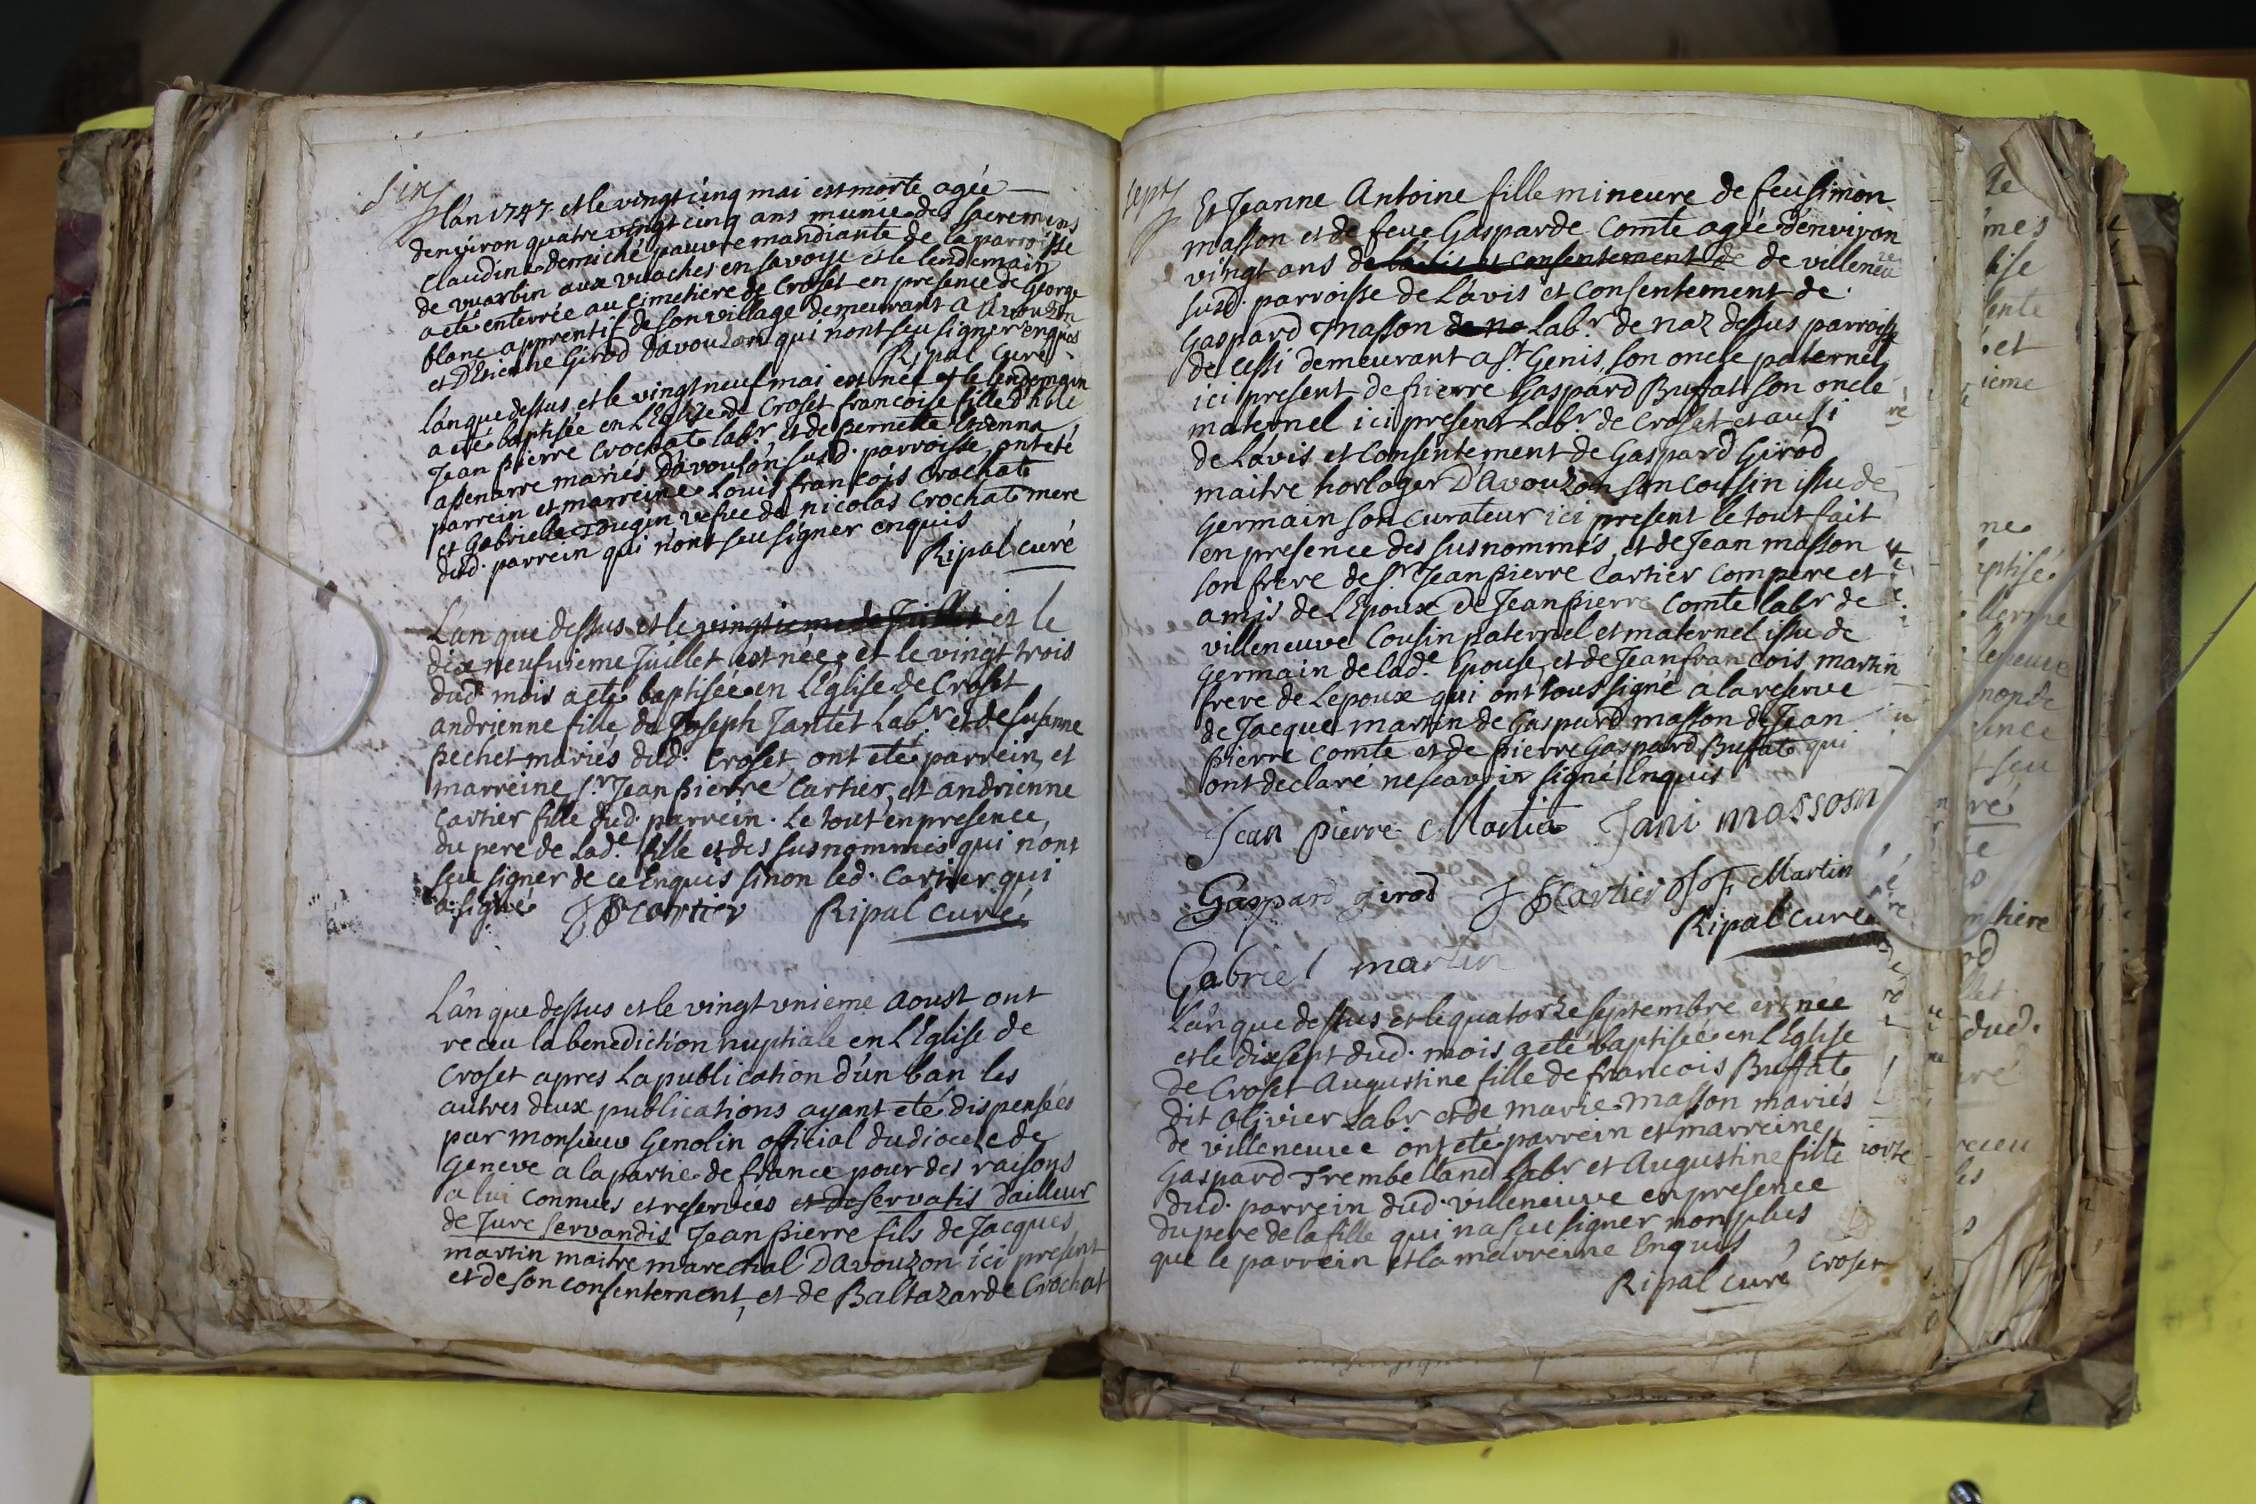 Six
L'an 1747 et le vingt cinq mai est morte agée
denviron quatre vingt cinq ans munie des sacremens
Claudine demiché pauvre mandiante de la parroisse
de vuarbin aux vuaches en savoye et le lendemain
a eté enterrée au cimetiere de Croset en presence de George
blanc apprentif de son village demeurant a Avouzon
et D'Etienne Girod Davouzon qui n'ont seu signer enquis
Ripal Curé
L'an que dessus et le vingt neuf mai est née et le lendemain
a eté baptisée en L'Eglise de Croset francoise fille d'h'le
Jean pierre Crochat labr. et de pernette Etienna
assenarre mariés D'avouson susd. parroisse, ont eté
parrein et marreine Louis francois Crochat
et Gabrielle Tougin vefve de nicolas Crochat mere
dud. parrein qui n'ont seu signer enquis
Ripal curé
L'an que dessus et le vingtieme de Juillet et le
dix neufvieme Juillet est née et le vingt trois
dud. mois a eté baptisée en L'Eglise de Croset
andrienne fille de Joseph Jantet Labr. et de susanne
pechet mariés dud. Croset, ont eté parrein et
marreine, sr. Jean pierre Cartier, et andrienne
Cartier fille dud. parrein. Le tout en presence
du pere de lade. fille et des susnommés qui n'ont
seu signer de ce Enquis sinon led. Cartier qui
a signé JP Cartier Ripal curé
L'an que dessus et le vingt unieme Aoust ont
receu la benediction nuptiale en L'Eglise de
Croset apres la publication d'un ban les
autres deux publications ayant eté dispensées
par monsieur Genolin official du diocese de
Geneve a la partie de france pour des raisons
a lui connues et reservées et deservatis dailleur
de Jure servandis Jean pierre fils de Jacques
martin maitre marechal D'avouzon ici present
et de son consentement, et de Baltazarde Crochat
sept
Et Jeanne Antoine fille mineure de feu simon
masson et de feue Gasparde Comte agée d'environ
vingt ans de l'avis et consentement de de villeneuve
susd. parroisse de L'avis et Consentement de
Gaspard masson de na Labr de naz dessus parroisse
de Cessi demeurant a st. Genis son oncle paternel
ici present de pierre Gaspard Buffat son oncle
maternel ici present Labr. de Croset et aussi
de L'avis et Consentement de Gaspard Girod
maitre horloger D'Avouzon son cousin issu de
germain son curateur ici present le tout fait
en presence des susnommés, et de Jean masson
son frere de sr. Jean pierre Cartier compere et
amis de L'Epoux de Jean pierre Comte labr de
villeneuve Cousin paternel et maternel issu de
germain de lade. Epouse, et de Jean francois martin
frere de Lepoux qui ont tous signé a la reserve
de Jacque martin de Gaspard masson de Jean
pierre Comte et de pierre Gaspard Buffat qui
ont declaré ne scavoir signé Enquis
Jean pierre Martin Jani masson
Gaspard girod JP Cartier JF Martin
Ripal curé
Gabriel martin
L'an que dessus et le quatorze septembre est née
et le dixsept dud. mois a eté baptisée en L'Eglise
de Croset Augustine fille de francois Buffat
dit Olivier Labr et de Marie Masson mariés
de villeneuve ont eté parrein et marreine
Gaspard Trembelland Labr et Augustine fille
dud. parrein dud. villeneuve en presence
du pere de la fille qui na seu signer non plus
que le parrein et la marreine Enquis
Ripal curé
Croset